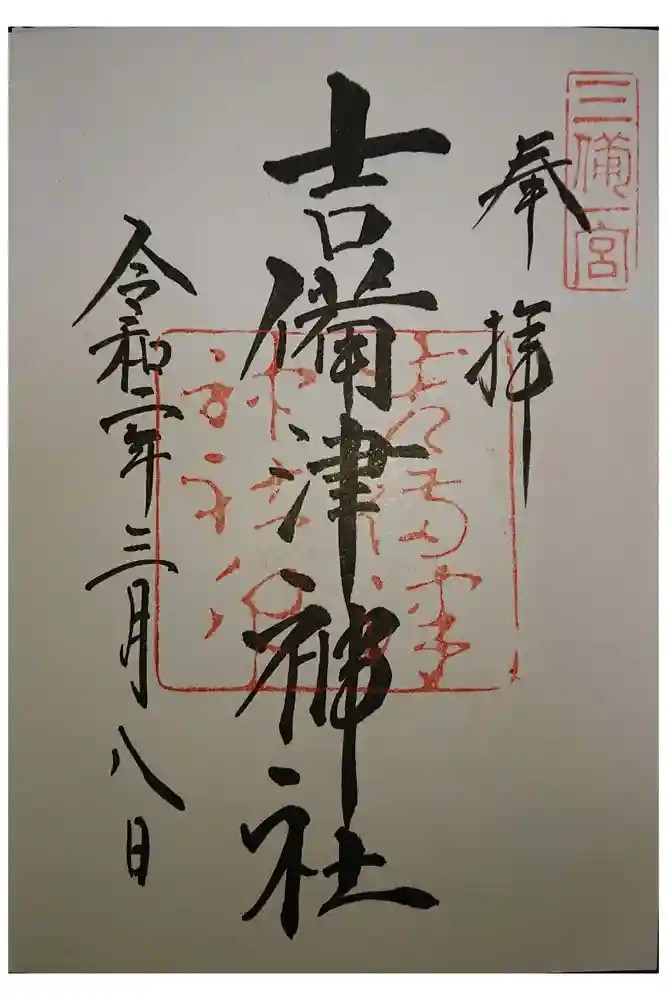 三備一宮
奉拝
吉備津神社
令和二年三月八日